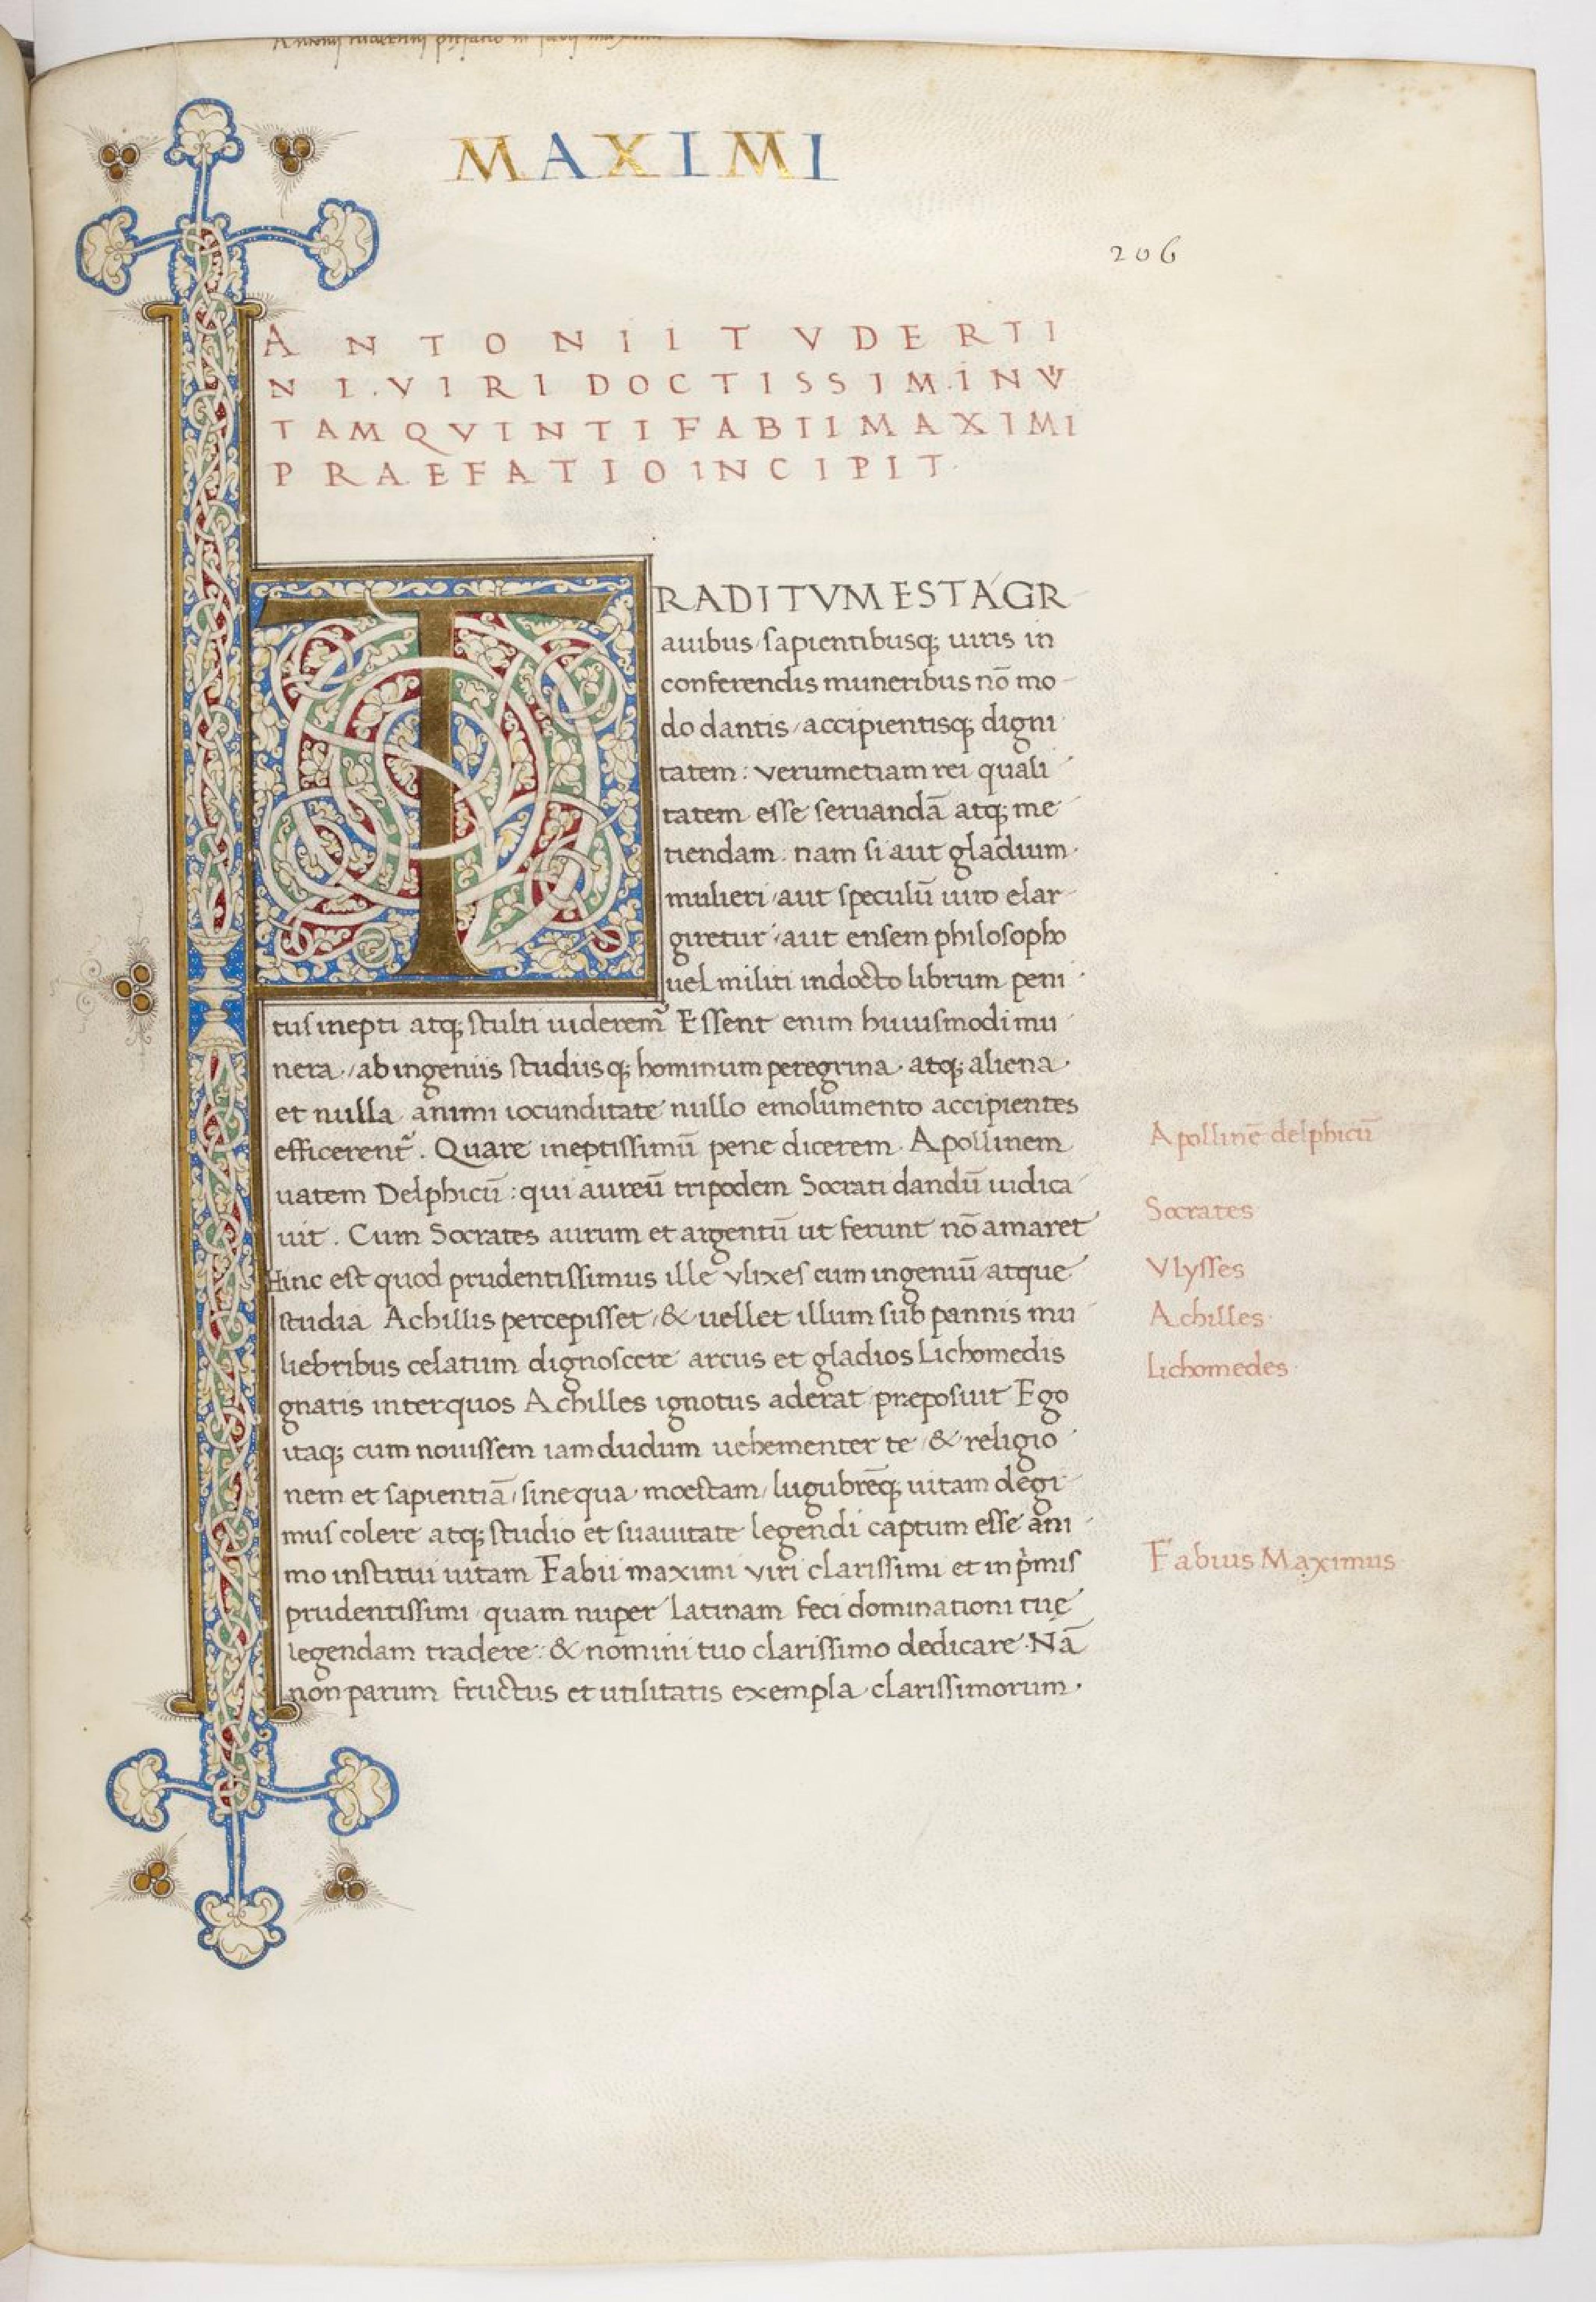 MAXIMI
206
ANTONII TVDERTI
NI. VIRI DOCTISSIM. IN V
TAM QVINTI FABII MAXIMI
PRAEFATIO INCIPIT.
TRADITVM EST A GR
auibus sapientibusq; uiris in
conferendis muneribus nō mo
do dantis accipientisq; digni
tatem: verumetiam rei quali
tatem esse seruandā atq; me
tiendam. nam si aut gladium
mulieri aut speculū uiro elar
giretur aut ensem philosopho
uel militi indocto librum peni
tus inepti atq; stulti uideremr̃ Essent enim huiusmodi mu
nera, ab ingeniis studiisq; hominum peregrina. atq; aliena.
et nulla animi iocunditate nullo emolumento accipientes
efficerent᷑. Quare ineptissimū pene dicerem. Apollinem
uatem Delphicū: qui aureū tripodem Socrati dandū iudica
uit. Cum Socrates aurum et argentū ut ferunt nō amaret
Hinc est quod prudentissimus ille vlixes cum ingeniū atque
studia Achillis percepisset, & uellet illum sub pannis mu
liebribus celatum dignoscere arcus et gladios Lichomedis
gnatis inter quos Achilles ignotus aderat præposuit Ego
itaq; cum nouissem iamdudum uehementer te & religio
nem et sapientiā, sine qua moestam, lugubrēq; uitam degi
mus colere atq; studio et suauitate legendi captum esse ani
mo institui uitam Fabii maximi viri clarissimi et in p̓mis
prudentissimi quam nuper latinam feci dominationi tuę
legendam tradere: & nomini tuo clarissimo dedicare. Nā
non parum fructus et utilitatis exempla clarissimorum.
Apollinē delphicū
Socrates
Vlysses
Achilles
Lichomedes
Fabius Maximus